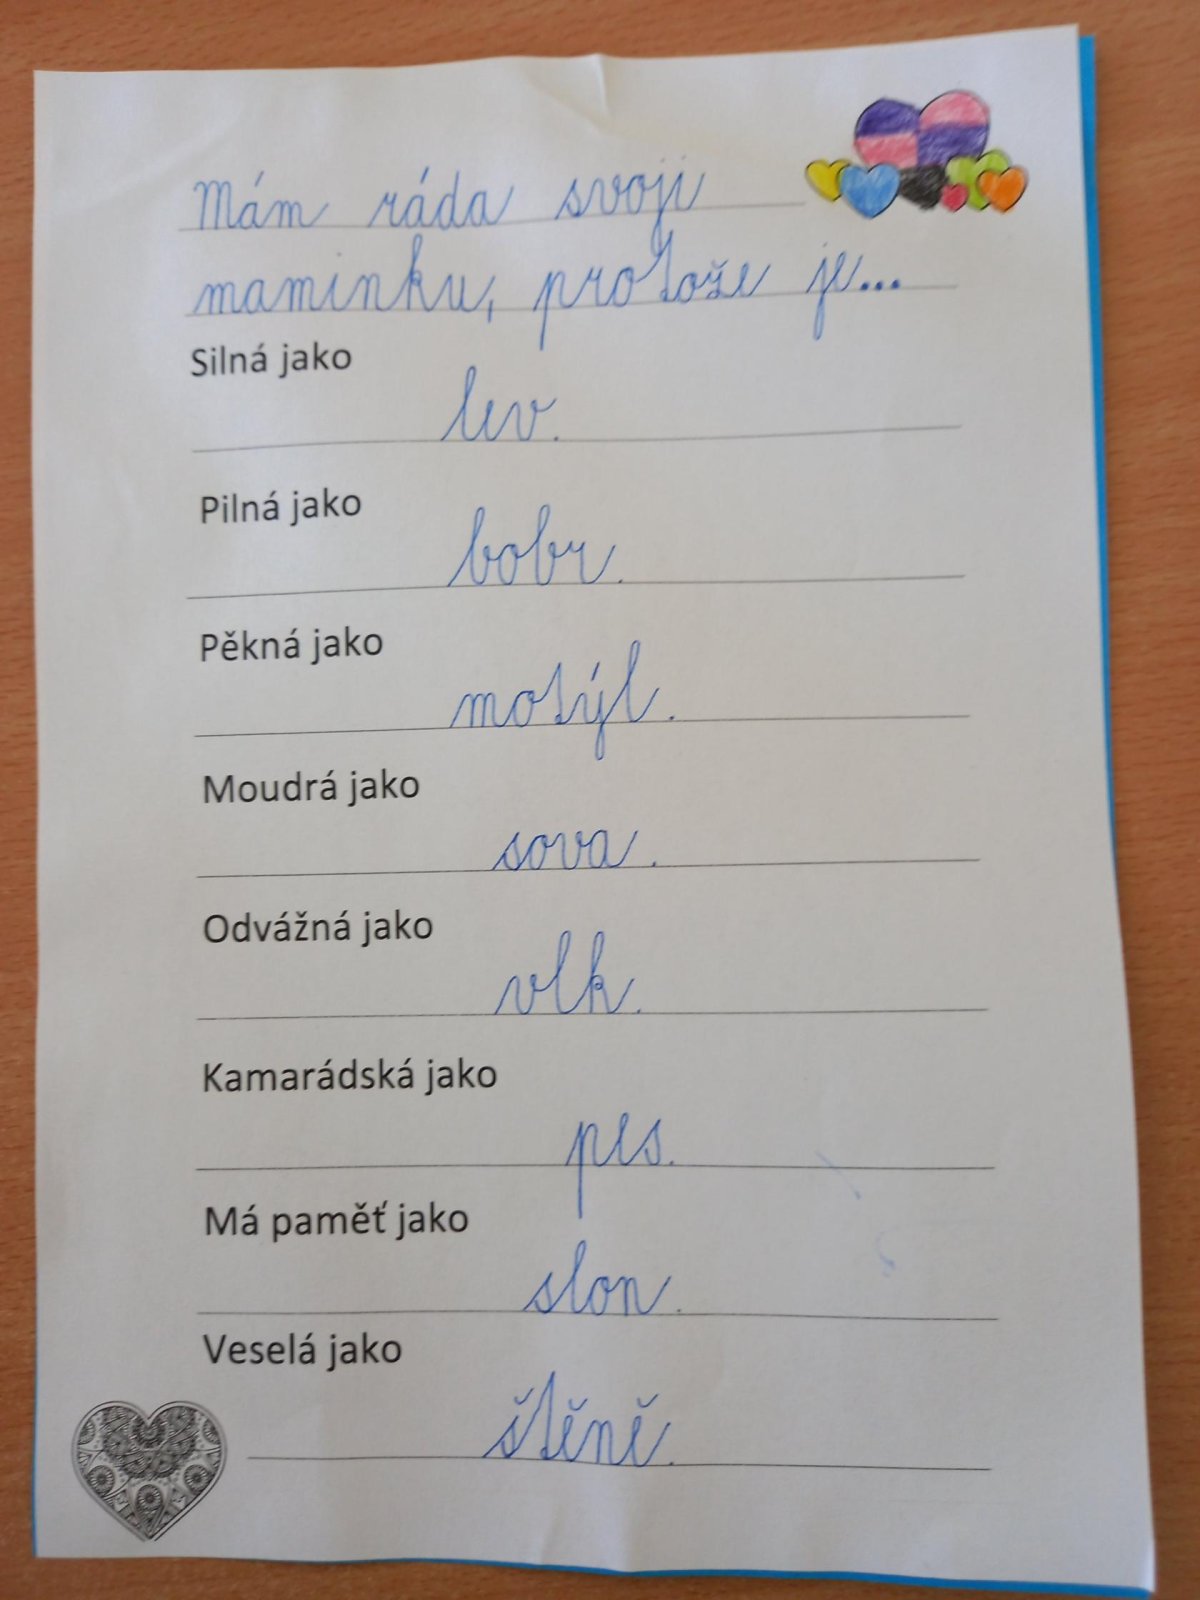 Mám ráda svoji
maminku, protože je...
Silná jako
lev.
Pilná jako
bobr.
Pěkná jako
motýl.
Moudrá jako
sova.
Odvážná jako
vlk.
Kamarádská jako
pes.
Má paměť jako
slon.
Veselá jako
štěně.